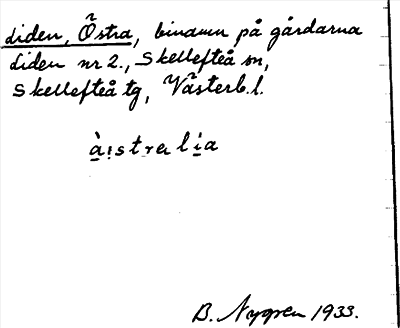 Liden, Östra, binamn på gårdarna
Liden nr 2., Skellefteå sn,
Skellefteå tg, Västerb. l.
B. Nygren 1933.